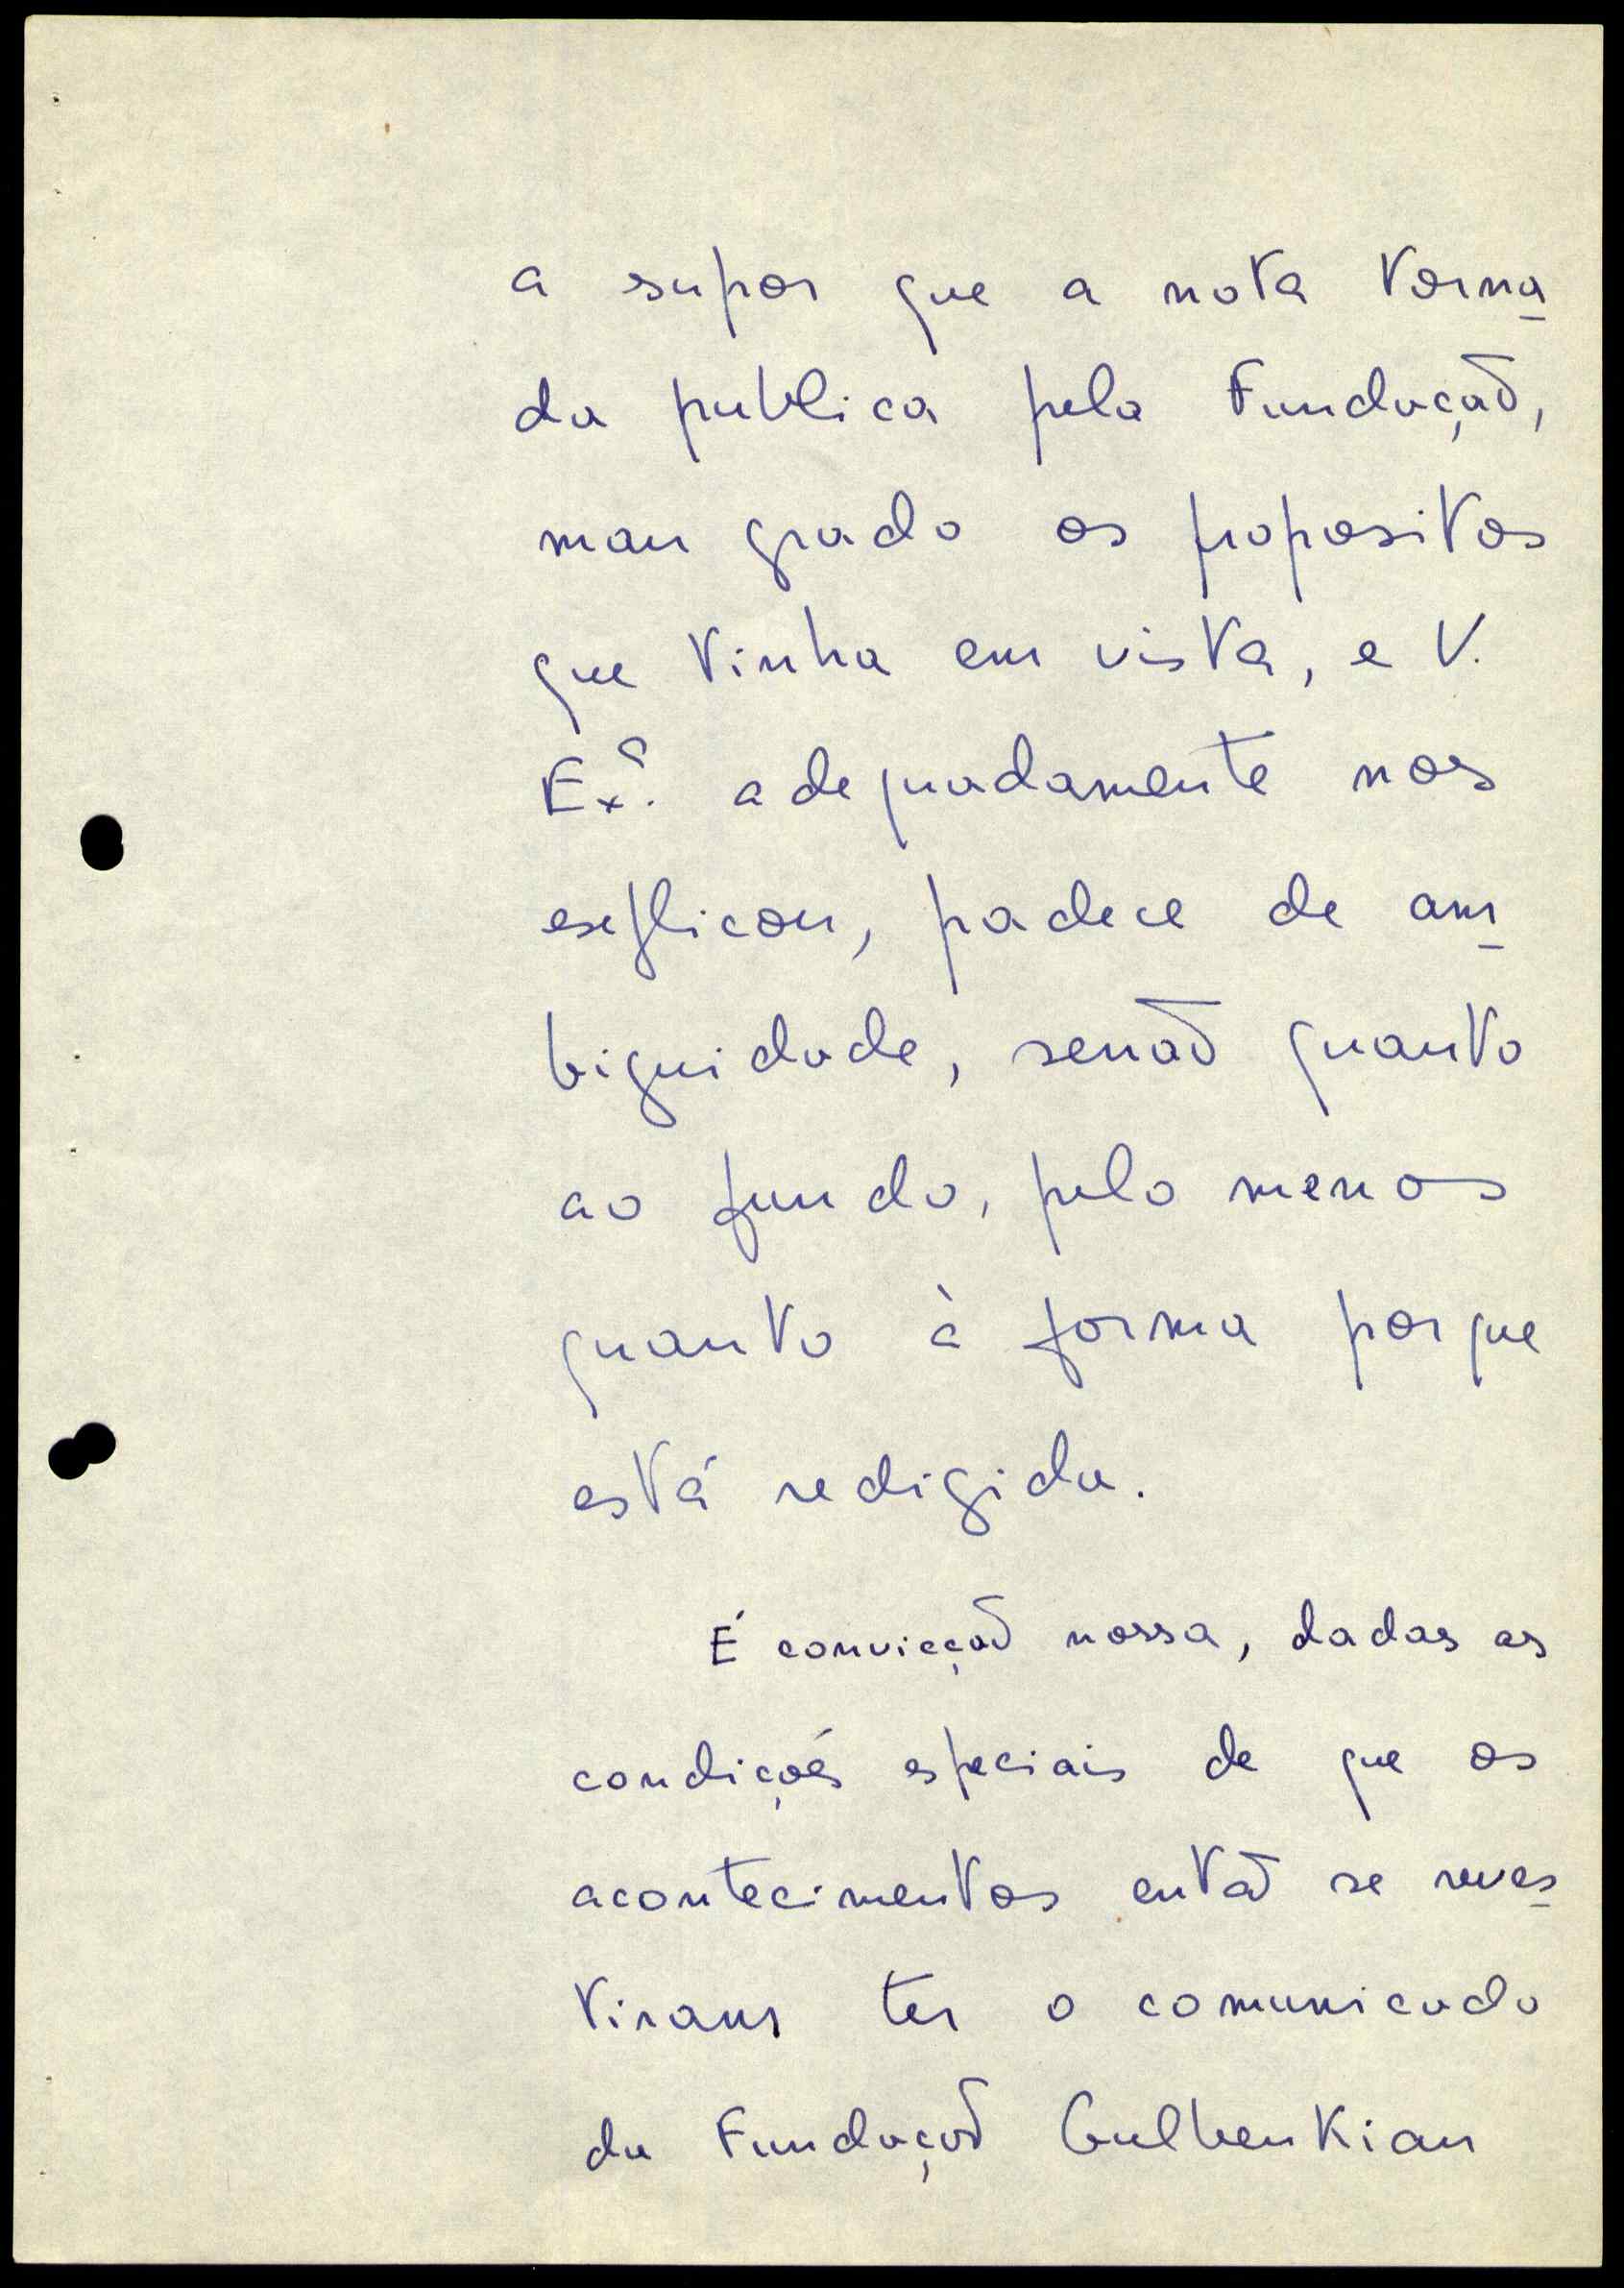 a supor que a nota torna
da publica pela Fundação,
mau grado os propositos
que tinha em vista, e V.
Ex.ª adequadamente nos
explicou, padece de am
biguidade, senão quanto
ao fundo, pelo menos
quanto à forma porque
está redigida.
É convicção nossa, dadas as
condições especiais de que os
acontecimentos então se reves
tiram ter o comunicado
da Fundação Gulbenkian